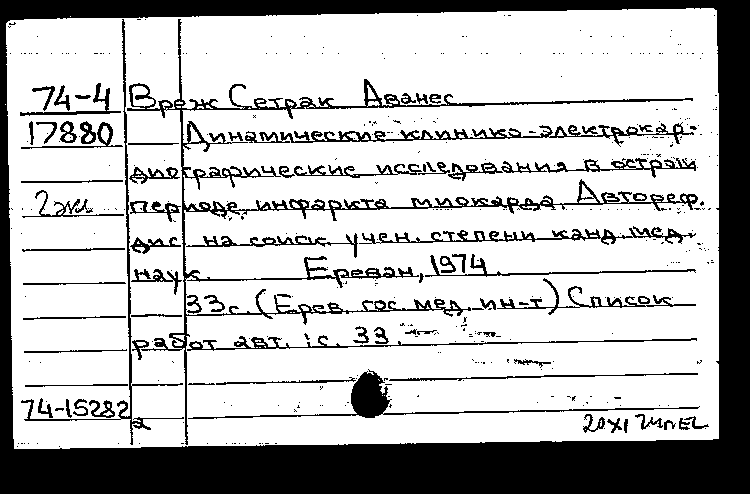 74-4 Вреж Сетрак Аванес
17880 Динамические клинико-электрокар-
диографические исследования в остром
2 экз периоде инфаркта миокарда. Автореф.
дис. на соиск. учен. степени канд. мед.
наук. Ереван, 1974.
33с. (Ерев. гос. мед. ин-т) Список
работ авт.: с. 33.
74-15282 а
20 XI